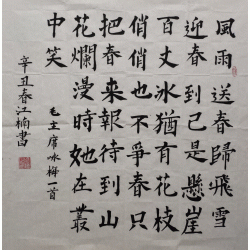 風雨送春歸飛雪
迎春到已是懸崖
百丈冰猶有花枝
俏俏也不爭春只
把春來報待到山
花爛漫時她在叢
中笑
毛主席咏梅一首
辛丑春江楠書